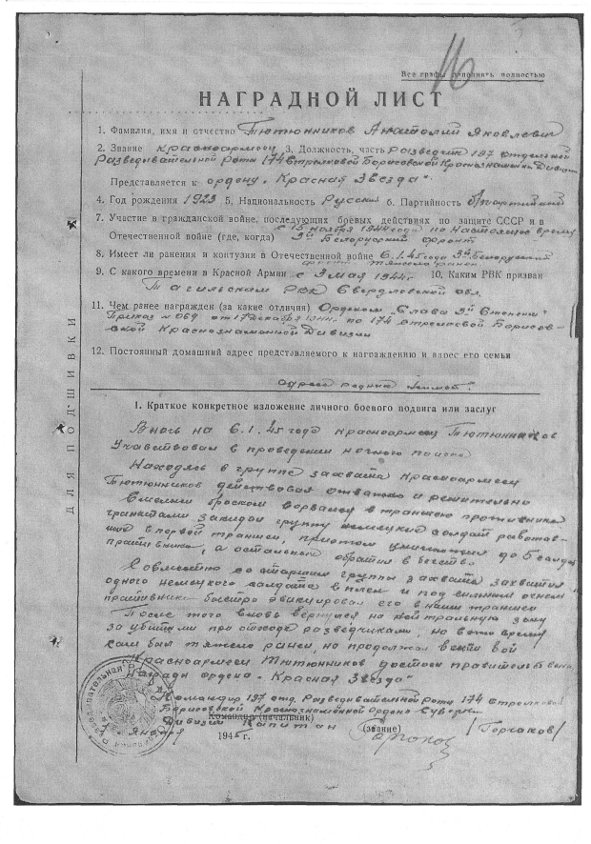 16
Все графы заполнять полностью
НАГРАДНОЙ ЛИСТ
1. Фамилия, имя и отчество Тютюнников Анатолий Яковлевич
2. Звание Красноармеец 3. Должность, часть Разведчик 197 отдельной
Разведывательной Роты 174 Стрелковой Борисовской Краснознамённой Дивизии
Представляется к ордену „Красная Звезда"
4. Год рождения 1923 5. Национальность Русский 6. Партийность
7. Участие в гражданской войне, последующих боевых действиях по защите СССР и в
с 15 ноября 1944 года по настоящее время
Отечественной войне (где, когда) 3й Белорусский фронт
8. Имеет ли ранения и контузии в Отечественной войне 6.1.45 года 3й Белорусский
фронт тяжело ранен
9. С какого времени в Красной Армии с 9 мая 1944 10. Каким РВК призван
Тагильским РВК Свердловской обл.
11. Чем ранее награжден (за какие отличия) Орденом „Слава 3й Степени"
Приказ № 069 от 17 декабря по 174 Стрелковой Борисов-
ской Краснознаменной Дивизии
12. Постоянный домашний адрес представляемого к награждению и адрес его семьи
адреса родных
ДЛЯ ПОДШИВКИ
1. Краткое конкретное изложение личного боевого подвига или заслуг
В ночь на 6.1.45 года красноармеец Тютюнников
Участвовал в проведении ночного поиска
Находясь в группе захвата Красноармеец
Тютюнников действовал отважно и решительно
Смелым броском ворвался в траншею противника
гранатами закидал группу немецких солдат работав-
ших в первой траншее, притом уничтожил до 5 солдат
противника, а остальных обратил в бегство
Совместно со старшим группы захвата захватил
одного немецкого солдата в плен и под сильным огнём
противника быстро эвакуировал его в наши траншеи
После того вновь вернулся на нейтральную зону
за убитыми при отходе разведчиками, но в это время
сам был тяжело ранен, но продолжал вести бой
Красноармеец Тютюнников достоин правительственной
награды ордена „Красная Звезда"
Командир 197 отд. Разведывательной Роты 174 Стрелковой
Борисовской Краснознамённой Ордена Суворова
Командир (начальник)
Дивизии Капитан (Горчаков)
(звание)
Января 1945 г.